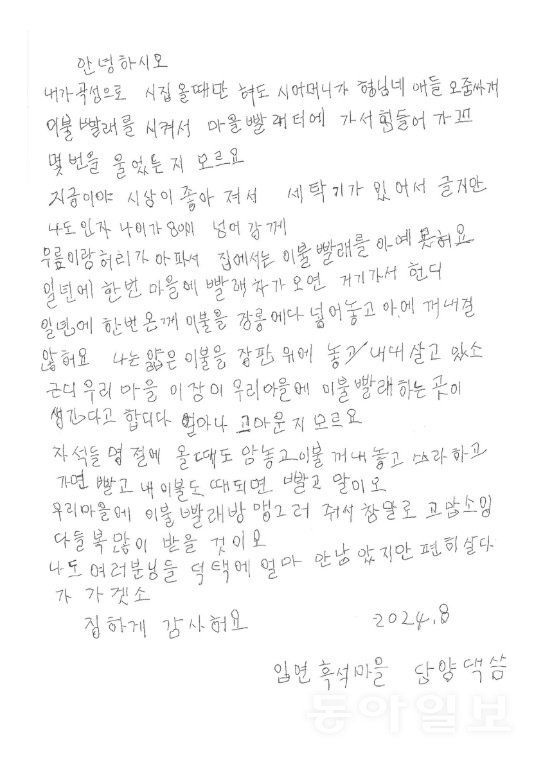 안녕하시오
내가 곡성으로 시집 올때만 혀도 시어머니가 형님네 애들 오줌싸게
이불 빨래를 시켜서 마을 빨래터에 가서 힘들어 가꼬
몇번을 울었는지 모르요
지금이야 시상이 좋아 져서 세탁기가 있어서 글지만
나도 인자 나이가 80이 넘어 감께
무릎이랑 허리가 아파서 집에서는 이불 빨래를 아예 못혀요
일년에 한번 마을에 빨래차가 오면 거기가서 헌디
일년에 한번 온게 이불을 장롱에다 넣어놓고 아에 꺼내질
않혀요 나는 얇은 이불을 장판 위에 놓고 내내 살고 있소
근디 우리 마을 이장이 우리마을에 이불 빨래하는 곳이
생긴다고 합디다 얼마나 고마운지 모르요
자석들 명절에 올때도 암농고 이불 꺼내놓고 쓰라하고
가면 빨고 내 이불도 때되면 빨고 말이오
우리마을에 이불 빨래방 맹그러 줘서 참말로 고맙소잉
다들 복 많이 받을 것이요
나도 여러분님들 덕택에 얼마 안남았지만 편히 살다
가 가겟소
징하게 감사혀요 2024.8
입면 흑석마을 단양댁 씀
동아일보